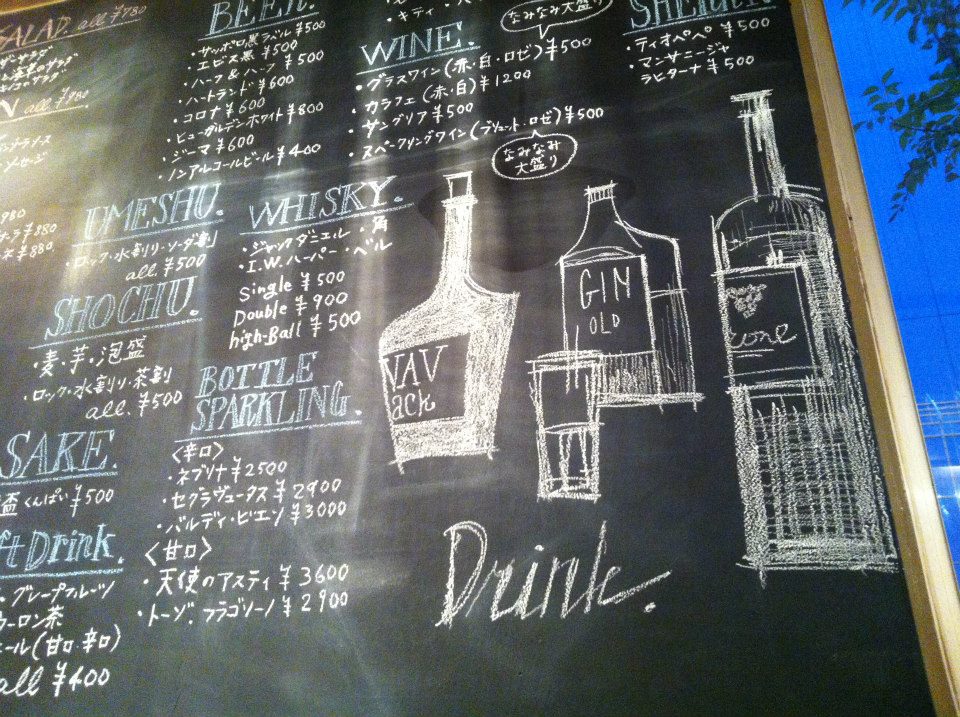 SALAD. all ¥780
all ¥980
ソーセージ
980
¥880
¥880
BEER.
・サッポロ黒ラベル ¥500
・エビス黒 ¥500
・ハーフ&ハーフ ¥500
・ハートランド ¥600
・コロナ ¥600
・ヒューガルデンホワイト ¥800
・ジーマ ¥600
・ノンアルコールビール ¥400
・キティ
なみなみ大盛り
WINE.
・グラスワイン(赤・白・ロゼ) ¥500
・カラフェ(赤・白) ¥1200
・サングリア ¥500
・スパークリングワイン(ブリュット、ロゼ) ¥500
なみなみ
大盛り
SHERRY.
・ティオペペ ¥500
・マンサニージャ
ラヒターナ ¥500
UMESHU.
・ロック・水割り・ソーダ割
all ¥500
WHISKY.
・ジャックダニエル・角
・I.W.ハーパー・ベル
Single ¥500
Double ¥900
high-Ball ¥500
SHOCHU.
・麦・芋・泡盛
・ロック・水割り・茶割
all. ¥500
BOTTLE
SPARKLING.
〈辛口〉
・ネブリナ ¥2500
・セグラヴュータス ¥2900
・バルディ・ビエン ¥3000
〈甘口〉
・天使のアスティ ¥3600
・トーゾ、フラゴリーノ ¥2900
SAKE.
盃 くんぱい ¥500
ft Drink.
・グレープフルーツ
ウーロン茶
エール(甘口・辛口)
all ¥400
VAV
ack
GIN
OLD
rone
Drink.